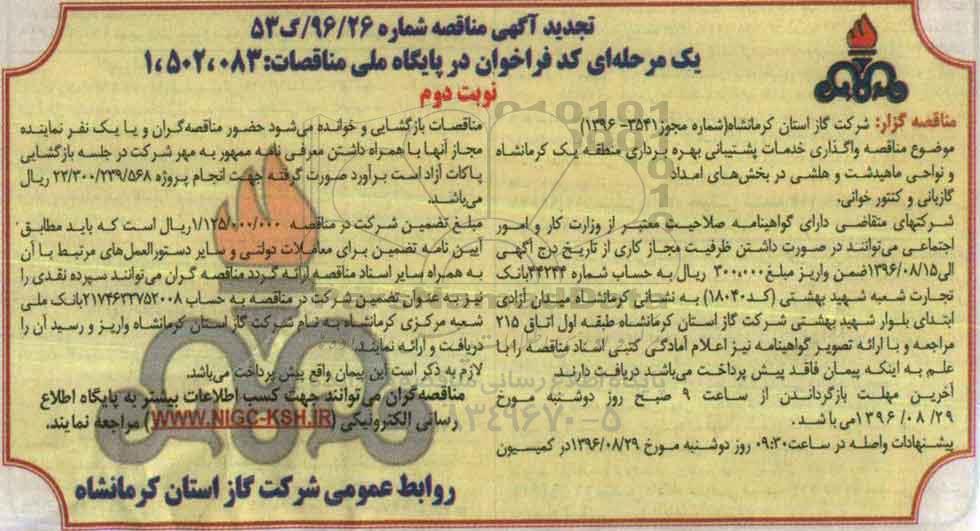 تجدید آگهی مناقصه شماره ۹۶/۲۶/گ۵۳
یک مرحله‌ای کد فراخوان در پایگاه ملی مناقصات: ۱،۵۰۲،۰۸۳
نوبت دوم
مناقصه گزار: شرکت گاز استان کرمانشاه(شماره مجوز۳۵۴۱-۱۳۹۶)
موضوع مناقصه واگذاری خدمات پشتیبانی بهره برداری منطقه یک کرمانشاه
و نواحی ماهیدشت و هلشی در بخش‌های امداد
گازبانی و کنتور خوانی.
شرکتهای متقاضی دارای گواهینامه صلاحیت معتبر از وزارت کار و امور
اجتماعی می‌توانند در صورت داشتن ظرفیت مجاز کاری از تاریخ درج آگهی
الی۱۳۹۶/۰۸/۱۵ضمن واریز مبلغ۳۰۰،۰۰۰ ریال به حساب شماره ۴۴۲۴۴بانک
تجارت شعبه شهید بهشتی (کد۱۸۰۴۰) به نشانی کرمانشاه میدان آزادی
ابتدای بلوار شهید بهشتی شرکت گاز استان کرمانشاه طبقه اول اتاق ۲۱۵
مراجعه و با ارائه تصویر گواهینامه نیز اعلام آمادگی کتبی اسناد مناقصه را با
علم به اینکه پیمان فاقد پیش پرداخت می‌باشد دریافت دارند.
آخرین مهلت بازگرداندن از ساعت ۹ صبح روز دوشنبه مورخ
۱۳۹۶/۰۸/۲۹می با شد.
پیشنهادات واصله در ساعت۰۹:۳۰ روز دوشنبه مورخ ۱۳۹۶/۰۸/۲۹در کمیسیون
مناقصات بازگشایی و خوانده می‌شود حضور مناقصه‌گران و یا یک نفر نماینده
مجاز آنها با همراه داشتن معرفی نامه ممهور به مهر شرکت در جلسه بازگشایی
پاکات آزاد است برآورد صورت گرفته جهت انجام پروژه ۲۲/۳۰۰/۲۳۹/۵۶۸ ریال
می‌باشد.
مبلغ تضمین شرکت در مناقصه ۱/۱۲۵/۰۰۰/۰۰۰ریال است که باید مطابق
آیین نامه تضمین برای معاملات دولتی و سایر دستورالعمل‌های مرتبط با آن
به همراه سایر اسناد مناقصه ارائه گردد مناقصه گران می‌توانند سپرده نقدی را
نیز به عنوان تضمین شرکت در مناقصه به حساب ۲۱۷۴۶۳۳۷۵۲۰۰۸بانک ملی
شعبه مرکزی کرمانشاه به نام شرکت گاز استان کرمانشاه واریز و رسید آن را
دریافت و ارائه نمایند.
لازم به ذکر است این پیمان واقع پیش پرداخت می‌باشد.
مناقصه‌گران می‌توانند جهت کسب اطلاعات بیشتر به پایگاه اطلاع
رسانی الکترونیکی (WWW.NIGC-KSH.IR) مراجعه نمایند.
روابط عمومی شرکت گاز استان کرمانشاه